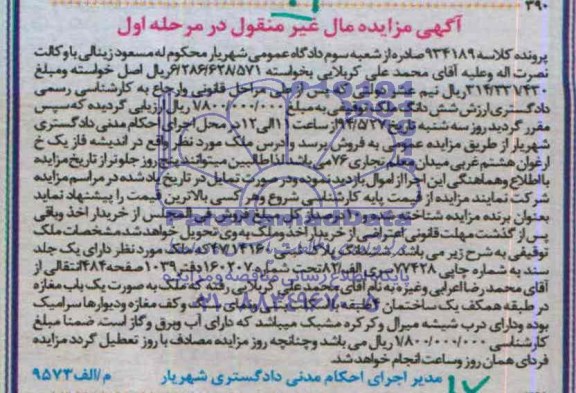 ۳۹۰
آگهی مزایده مال غیر منقول در مرحله اول
پرونده کلاسه ۹۳۴۱۸۹ صادره از شعبه سوم دادگاه عمومی شهریار محکوم له مسعود زینالی با وکالت
نصرت اله وعلیه آقای محمد علی کربلایی بخواسته ۶/۲۸۶/۶۲۸/۵۷۱ ریال اصل خواسته ومبلغ
۳۱۴/۳۳۱/۴۳۰ ریال نیم عشر دولتی که پس از طی مراحل قانونی وارجاع به کارشناسی رسمی
دادگستری ارزش شش دانگ ملک توقیفی به مبلغ ۷/۸۰۰/۰۰۰/۰۰۰ ریال ارزیابی گردیده که سپس
مقرر گردید روز سه شنبه تاریخ ۹۴/۵/۲۷ از ساعت ۱۱ الی ۱۲ در محل اجرای احکام مدنی دادگستری
شهریار از طریق مزایده عمومی به فروش برسد و آدرس ملک مورد نظر واقع در اندیشه فاز یک خ
ارغوان هشتم غربی میدان معلم تجاری ۷۶ می باشد لذا طالبین میتوانند پنج روز جلوتر از تاریخ مزایده
با اطلاع وهماهنگی این اجرا از اموال بازدید نموده ودر صورت تمایل در تاریخ یاد شده در مراسم مزایده
شرکت نمایند مزایده از قیمت پایه کارشناسی شروع وهر کسی بالاترین قیمت را پیشنهاد نماید
بعنوان برنده مزایده شناخته میشود از کل مبلغ فروش فی المجلس از خریدار اخذ وباقی
پس از گذشت مهلت قانونی اعتراضی از خریدار اخذ وملک به وی تحویل خواهد شد مشخصات ملک
توقیفی به شرح زیر می باشد ششدانگ پلاک ثبتی که ملک مورد نظر دارای یک جلد
سند به شماره چاپی ۷۷۴۲۸ سری الف ۸۲ تحت شماره ۱۶۰۲۰۷ دفتر ۱۰۳۹ صفحه ۴۸۴ انتقالی از
آقای محمد رضا اعرابی وغیره به نام آقای محمد علی کربلایی رفته که ملک به صورت یک باب مغازه
در طبقه همکف یک ساختمان ۴ طبقه با نمای سنگ وکف مغازه ودیوارها سرامیک
بوده ودارای درب شیشه میرال وکرکره مشبک میباشد که دارای آب وبرق وگاز است. ضمنا مبلغ
کارشناسی ۷/۸۰۰/۰۰۰/۰۰۰ ریال می باشد وچنانچه روز مزایده مصادف با روز تعطیل گردد مزایده
فردای همان روز وساعت انجام خواهد شد.
مدیر اجرای احکام مدنی دادگستری شهریار
م/الف ۹۵۷۳